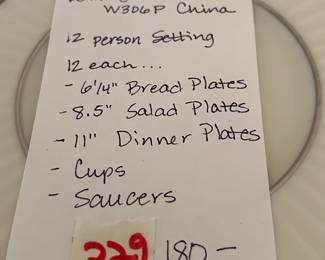 W306P China
12 person Setting
12 each...
- 6 1/4" Bread Plates
- 8.5" Salad Plates
- 11" Dinner Plates
- Cups
- Saucers
229 180-